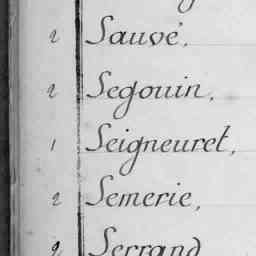 2 Sauvé,
2 Segouin,
1 Seigneuret,
2 Semerie,
2 Serrand